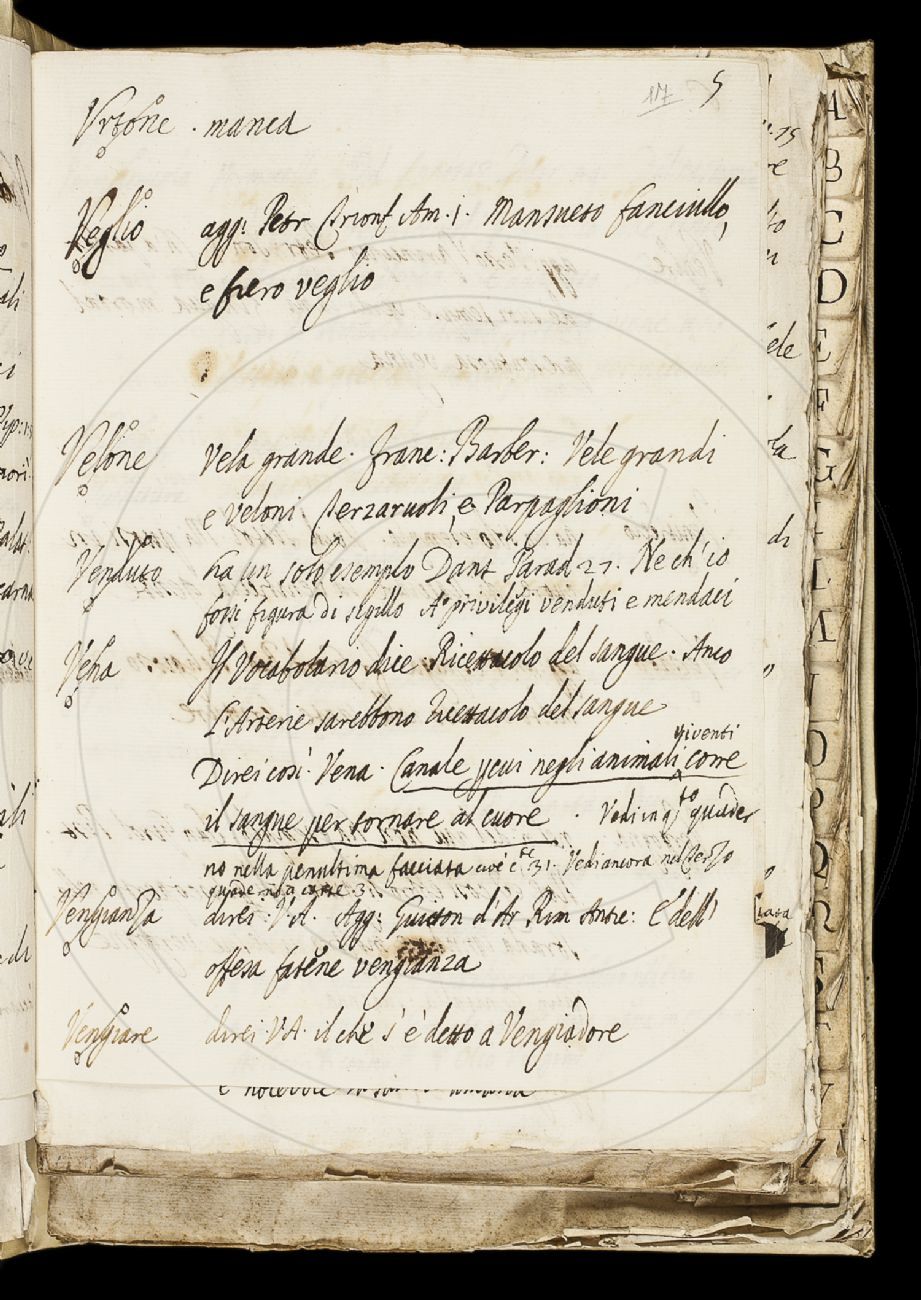 117 5
Urtone . manca
Veglio agg: Petr Trionf Am. 1. Mansueto fanciullo,
e fiero veglio
Velone Vela grande. Franc: Barber: Vele grandi
e veloni Terzaruoli, e Parpaglioni
Venduto ha un solo esemplo Dant Parad 27. Ne ch'io
fossi figura di sigillo A privilegi venduti e mendaci
Vena . Il Vocabolario dice Ricettacolo del sangue. Anco
L'Arterie sarebbono ricettacolo del sangue
Direi così. Vena. Canale p cui negli animali corre
viventi
il sangue per tornare al cuore . Vedi in qsto quader
no nella penultima facciata cioè 31. Vedi ancora nel terzo
quaderno a carte 3.
Vengianza direi V.A. Agg: Guitton d'Ar Rim Antic: E dell'
offesa fatene vengianza
Vengiare direi V.A. il che s'è detto a Vengiadore
A
B
C
D
E
F
G
L